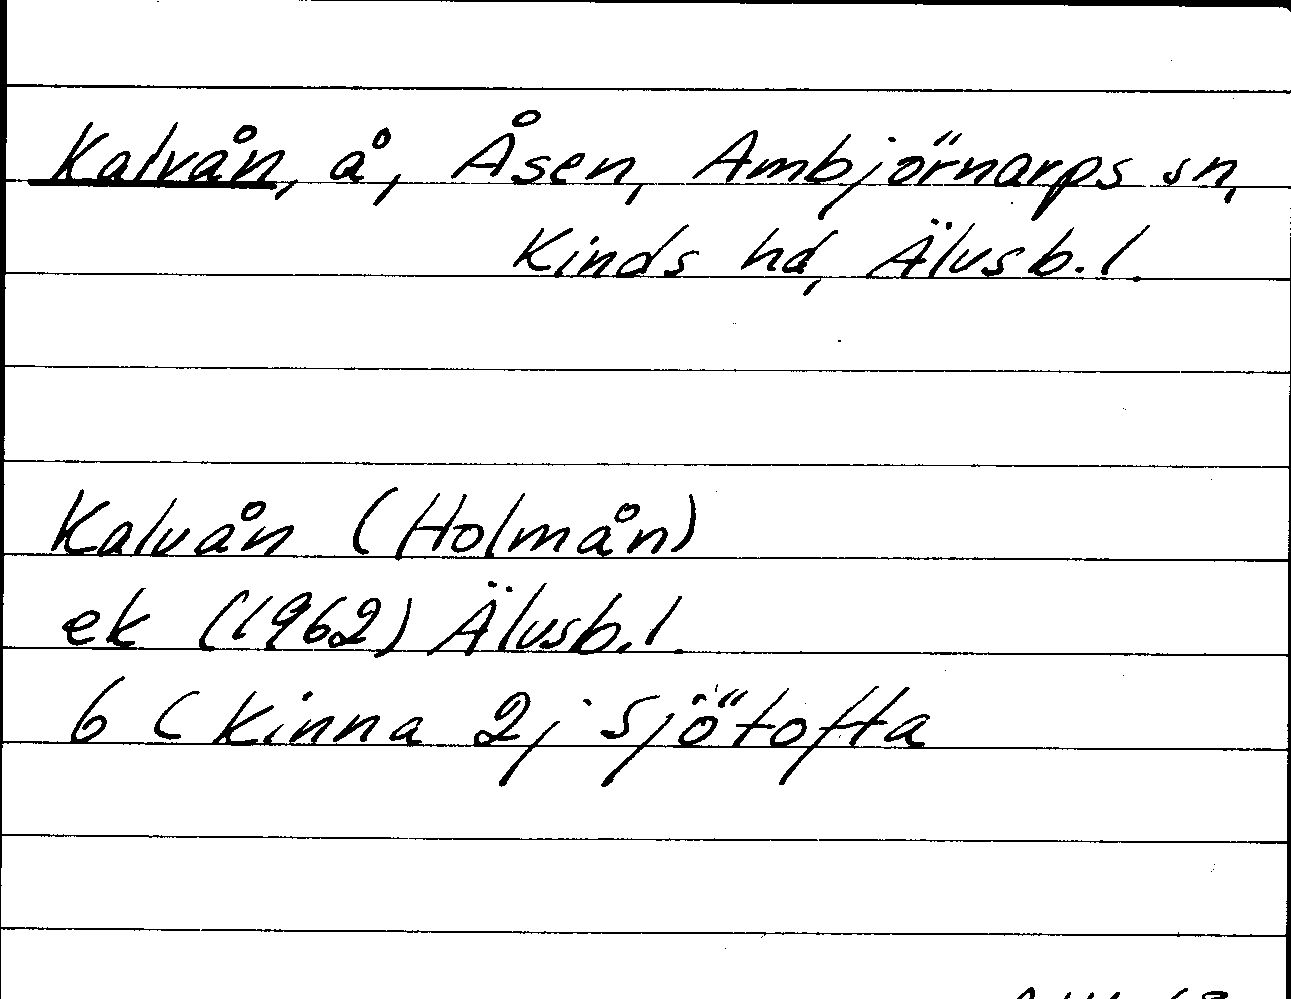 Kalvån, å, Åsen, Ambjörnarps sn,
Kinds hd, Älvsb.l.
Kalvån (Holmån)
ek (1962) Älvsb.l.
6 C Kinna 2j Sjötofta